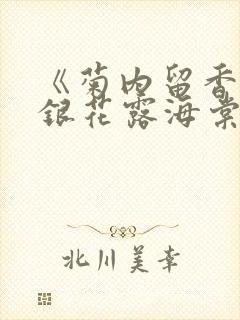 《菊内留香
银花露海棠
北川美幸